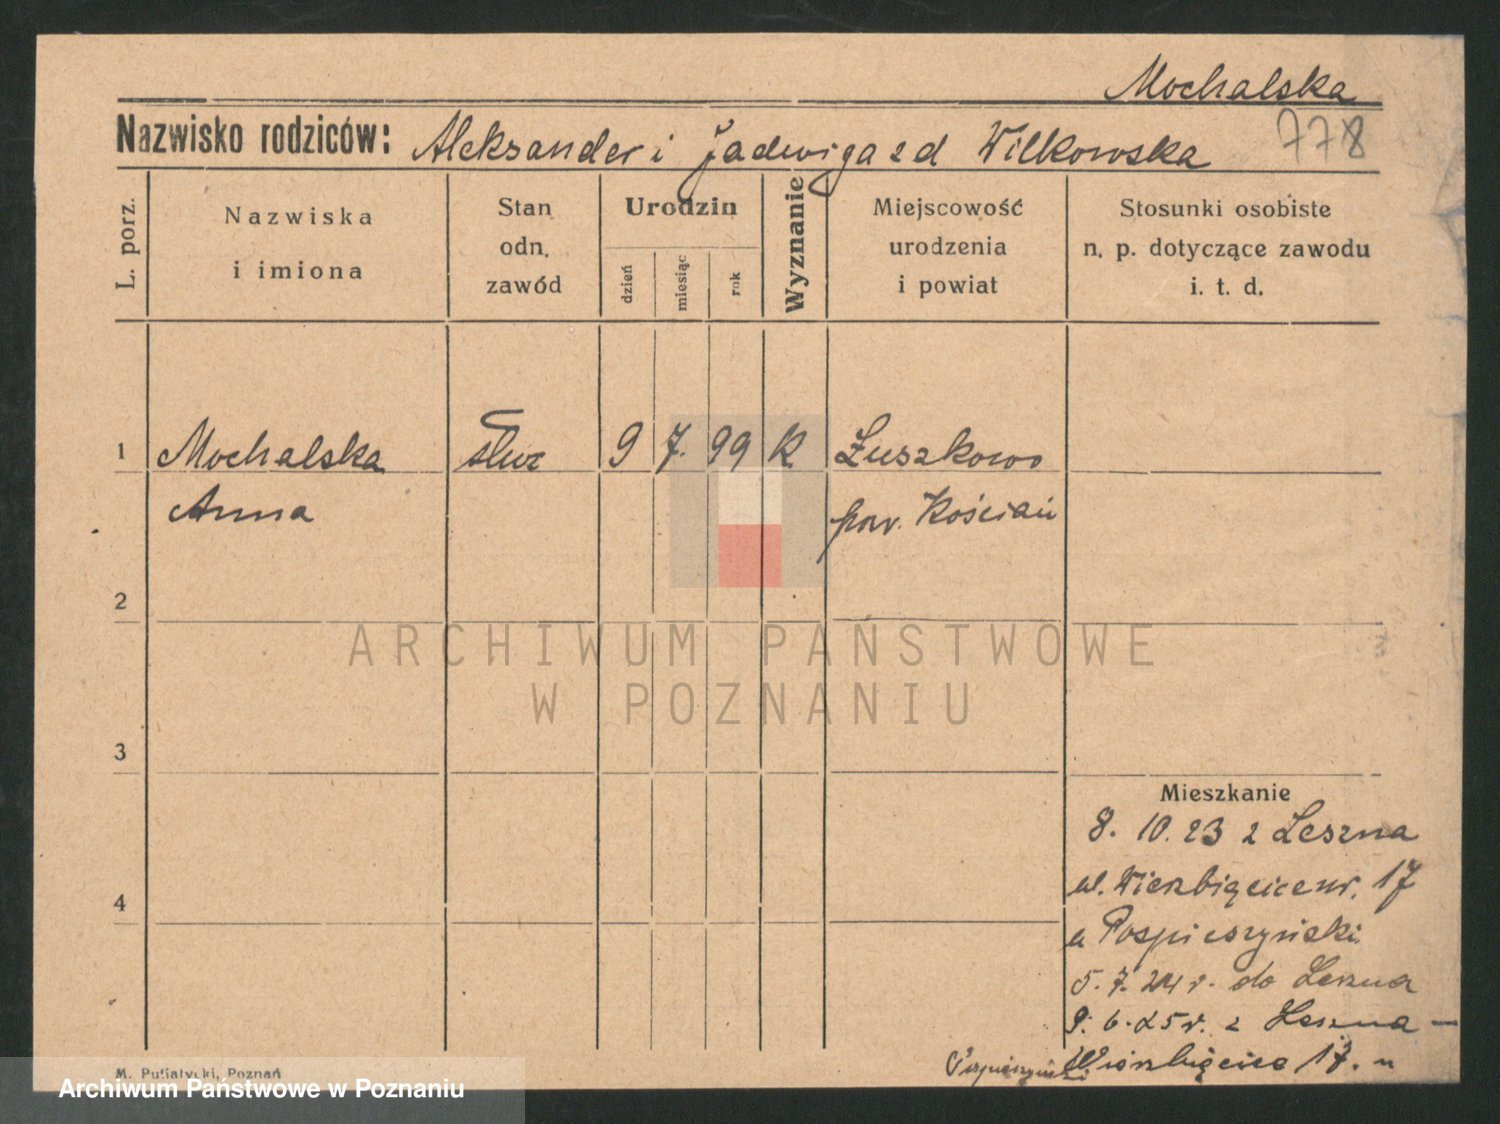 Mochalska
Nazwisko rodziców: Aleksander i Jadwiga z d Wilkowska 778
L. porz.
Nazwiska
i imiona
Stan
odn.
zawód
Urodzin
dzień
miesiąc
rok
Wyznanie
Miejscowość
urodzenia
i powiat
Stosunki osobiste
n. p. dotyczące zawodu
i. t. d.
1 Mochalska służ 9 7. 99 K Łuszkowo
Anna pow. Kościan
2
ARCHIWUM PAŃSTWOWE
W POZNANIU
3
Mieszkanie
8. 10. 23 z Leszna
ul. Wierzbięcice nr. 17
4
u Pospieszyński
5. 7. 24 r. do Leszna
9. 6. 25 r. z Leszna —
Wierzbięcice 17. u
Pospieszyński
M. Putiatycki, Poznań
Archiwum Państwowe w Poznaniu